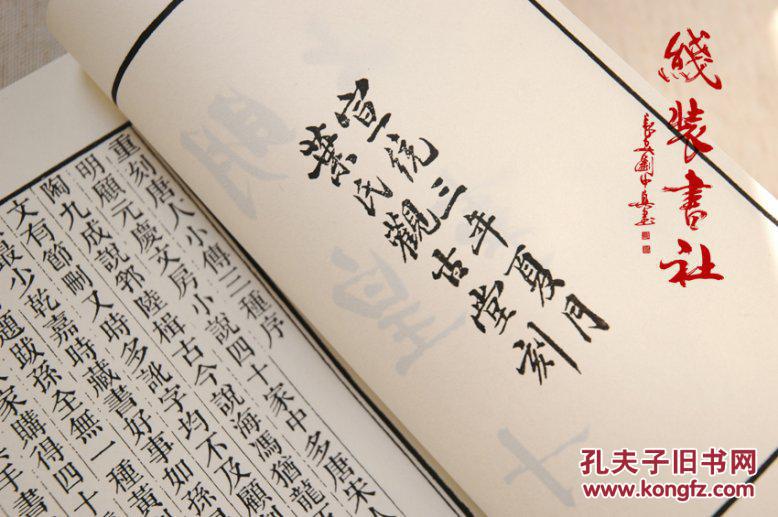 宣統三年夏月
葉氏觀古堂刻
重刻唐人小傳三種序
明顧元慶文房小說四十家中多唐宋人
陶九成說郛陸楫古今說海馮猶龍五
文有節刪又時多訛字均不及顧刻
最少乾嘉時藏書好事如孫
題跋孫全無一種黃
家購得四十
手書
綫裝書社
孔夫子旧书网
www.kongfz.com